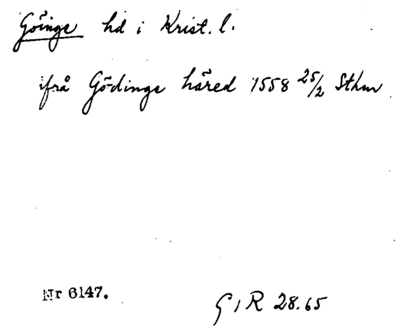 Göinge hd i Krist. l.
ifrå Gödinge häred 1558 25/2 Sthm
Nr 6147.
G I R 28.65